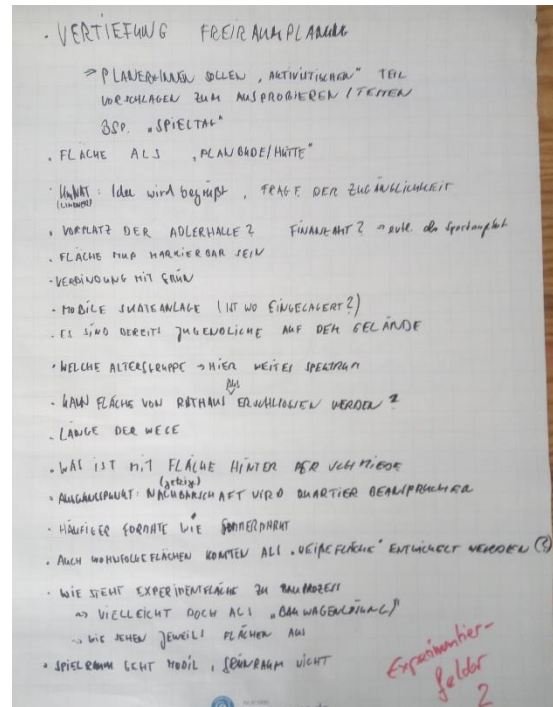 · VERTIEFUNG FREIRAUMPLANUNG
⇒ PLANER*INNEN SOLLEN „AKTIVISTISCHEN" TEIL
VORSCHLAGEN ZUM AUSPROBIEREN / TESTEN
BSP. „SPIELTAG"
· FLÄCHE ALS „PLANBUDE/HÜTTE"
: Idee wird begrüßt, FRAGE DER ZUGÄNGLICHKEIT
(LINDNER)
· VORPLATZ DER ADLERHALLE? FINANZAMT? → evtl. als
· FLÄCHE MUß MARKIERBAR SEIN
· VERBINDUNG MIT GRÜN
· MOBILE SKATEANLAGE (IST WO EINGELAGERT?)
· ES SIND BEREITS JUGENDLICHE AUF DEM GELÄNDE
· WELCHE ALTERSGRUPPE → HIER WEITES SPEKTRUM
AUS
· KANN FLÄCHE VON RATHAUS ERSCHLOSSEN WERDEN?
· LÄNGE DER WEGE
· WAS IST MIT FLÄCHE HINTER DER SCHMIEDE
(jetzige)
· AUSGANGSPUNKT: NACHBARSCHAFT WIRD QUARTIER BEANSPRUCHEN
· HÄUFIGER FORMATE WIE SOMMERPARK
· AUCH WOHNFOLGEFLÄCHEN KÖNNTEN ALS „WEIßE FLÄCHE" ENTWICKELT WERDEN (?)
· WIE STEHT EXPERIMENTFLÄCHE ZU BAUPROZESS
→ VIELLEICHT DOCH ALS „BAUWAGENLÖSUNG"
→ WIE SEHEN JEWEILS FLÄCHEN AUS
· SPIELRAUM GEHT MOBIL, GRÜNRAUM NICHT
Experimentier-
felder
2